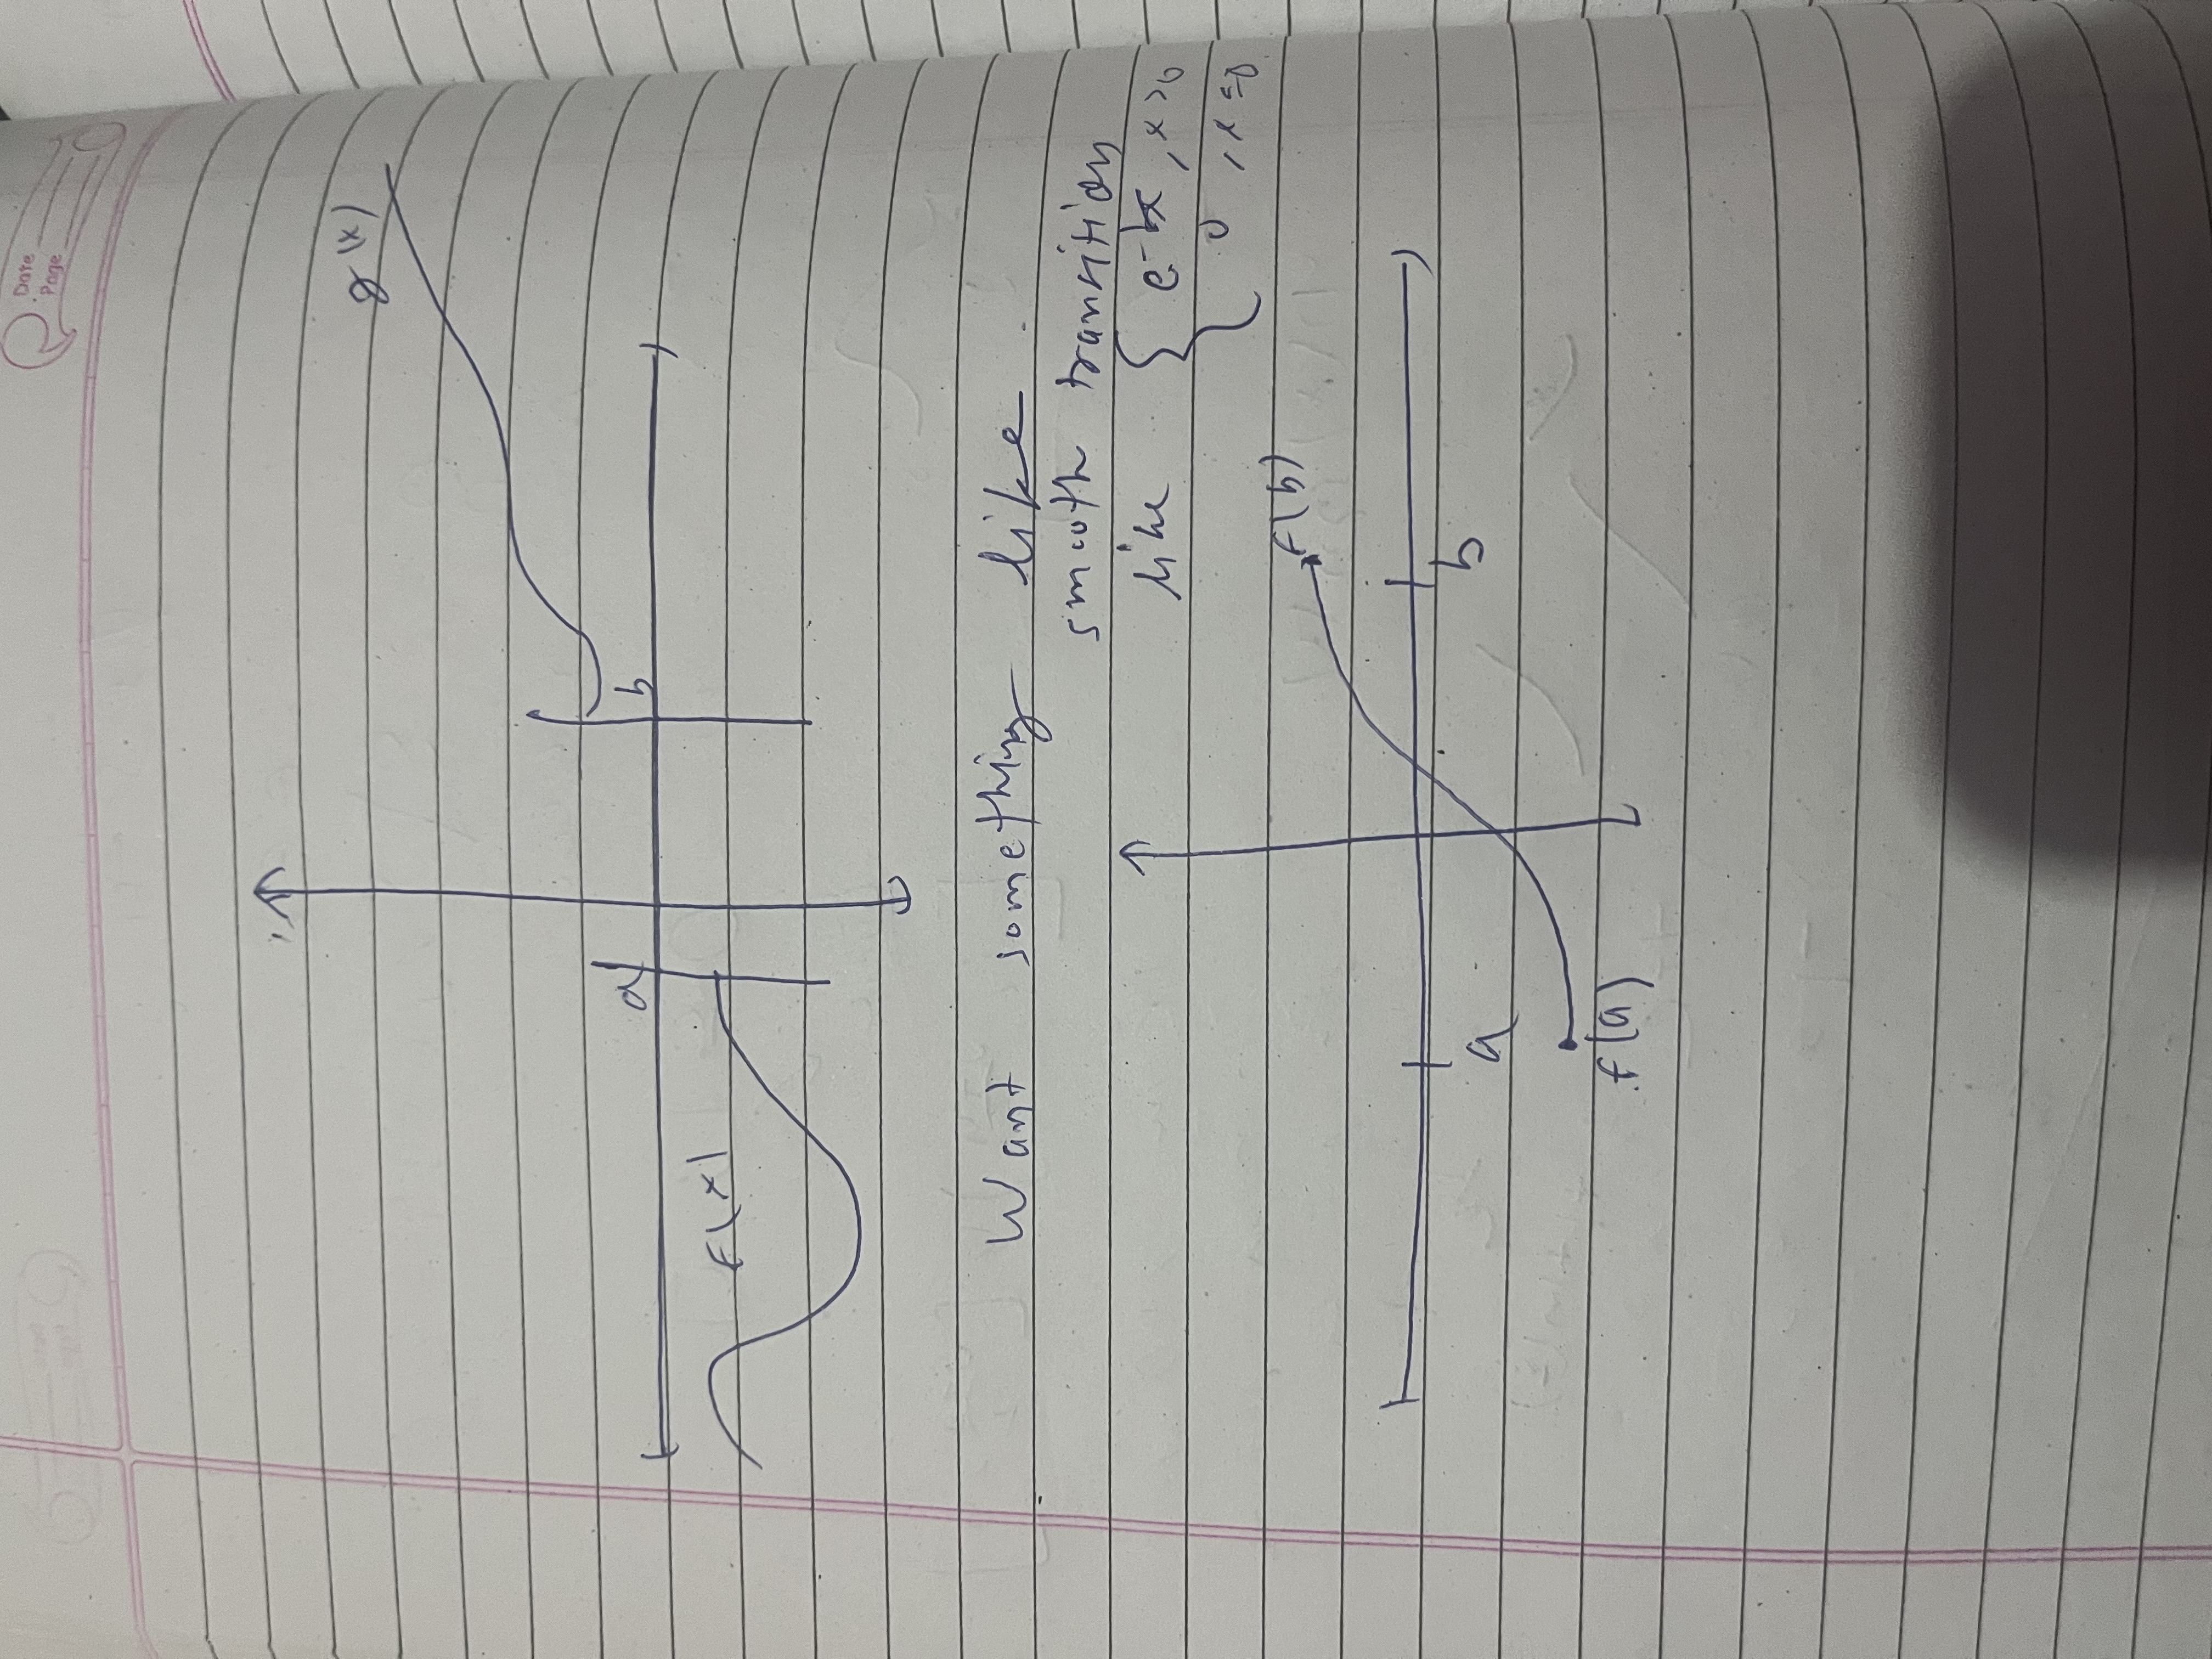 Date
Page
g(x)
a
b
f(x)
Want something like
smooth transition
like { e^-1/x , x>0
0 , x≤0
f(b)
a
b
f(a)